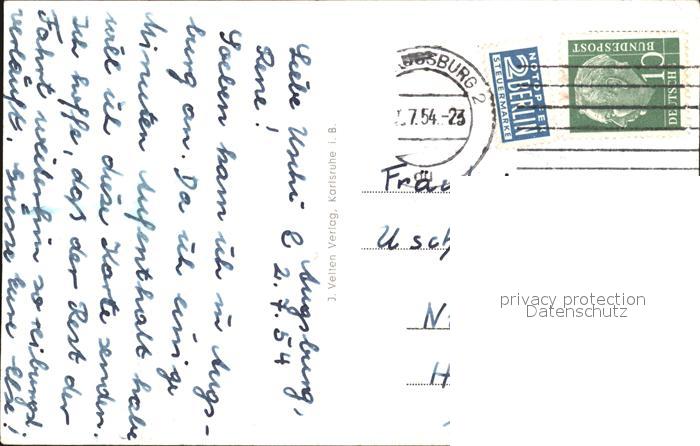 Augsburg,
2.7.54
Liebe Uschi &
Rene!
Soeben kam ich in Augs-
burg an. Da ich einige
Minuten Aufenthalt habe
will ich diese Karte senden.
Ich hoffe, daß der Rest der
Fahrt weiterhin so reibungsl.
verläuft. Grüsse Eure Else!
J. Velten Verlag, Karlsruhe i. B.
AUGSBURG 2
.7.54.-23
NOTOPFER
2 BERLIN
STEUERMARKE
DEUTSCHE
BUNDESPOST
10
Frau
Usch
N
H
privacy protection
Datenschutz